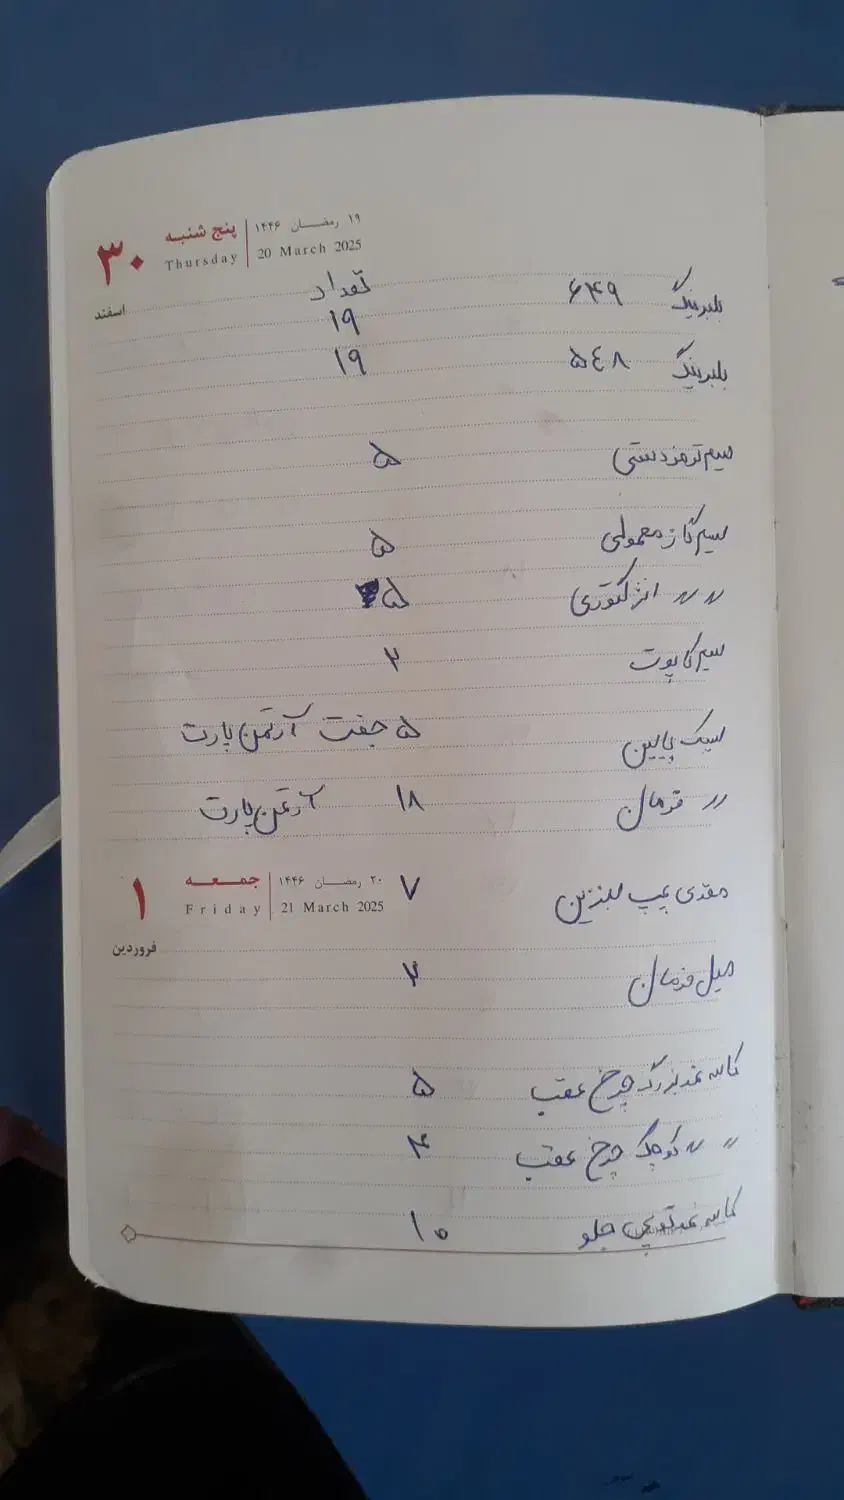 ۳۰ پنج شنبه ۱۹ رمضان ۱۴۴۶
اسفند Thursday 20 March 2025
تعداد
بلبرینگ ۶۴۹ ۱۹
بلبرینگ ۵٤۸ ۱۹
سیم ترمز دستی ۵
سیم گاز معمولی ۵
〃 〃 انژکتوری ۵
سیم کاپوت ۲
سیبک پایین ۵ جفت آرتمن پارت
〃 فرمان ۱۸ آرتمن پارت
۱ جمعه ۲۰ رمضان ۱۴۴۶
فروردین Friday 21 March 2025
مغزی پمپ بنزین ۷
میل فرمان ۲
کاسه نمد بزرگ چرخ عقب ۵
〃 〃 کوچک چرخ عقب ۴
کاسه نمد توپی جلو ۱۰